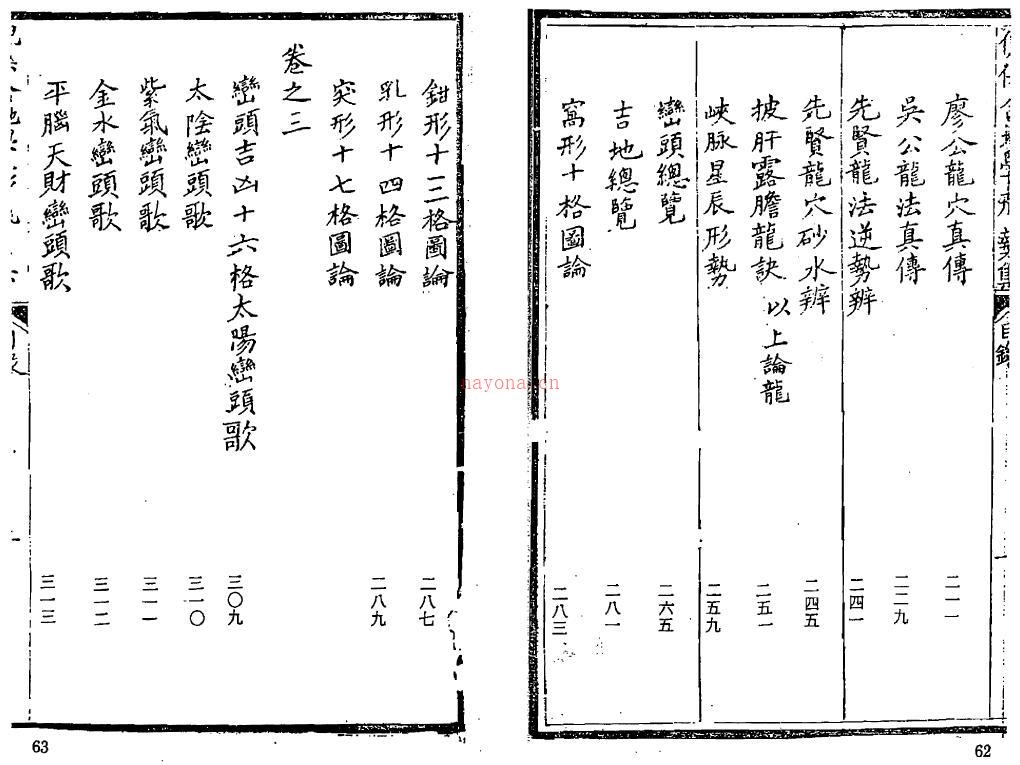 廖公龍穴真傳 二一一
吳公龍法真傳 二二九
先賢龍法逆勢辨 二四一
先賢龍穴砂水辨 二四五
披肝露膽龍訣 以上論龍 二五一
峽脉星辰形勢 二五九
巒頭總覽 二六五
吉地總覽 二八一
窩形十格圖論 二八三
62
鉗形十三格圖論 二八七
乳形十四格圖論 二八九
突形十七格圖論
卷之三
巒頭吉凶十六格太陽巒頭歌 三〇九
太陰巒頭歌 三一〇
紫氣巒頭歌 三一一
金水巒頭歌 三一二
平腦天財巒頭歌 三一三
63
目錄
nayona.cn